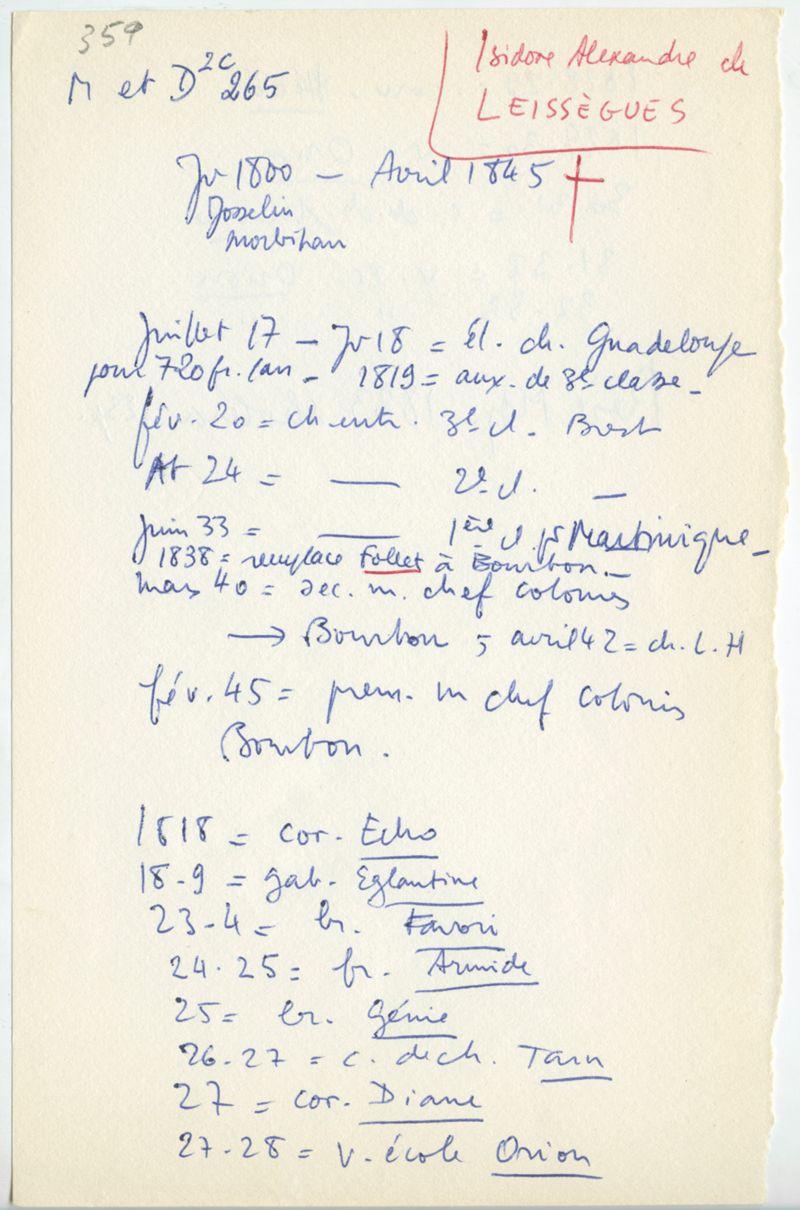 359
M et D 2c 265
Isidore Alexandre de
LEISSÈGUES
Jr 1800 – Avril 1845 †
Josselin
Morbihan
Juillet 17 – Jr 18 = él. ch. Guadeloupe
pour 720 fr. /an – 1819 = aux. de 3e classe –
fév. 20 = ch entr. 3e cl. Brest
At 24 = —— 2e cl. —
Juin 33 = —— 1ère cl pr Martinique –
1838 = remplace Follet à Bourbon –
mars 40 = sec. m. chef colonies
→ Bourbon 5 avril 42 = ch. L. H
fév. 45 = prem. m chef colonies
Bourbon.
1818 = cor. Echo
18-9 = gab. Eglantine
23-4 = br. Favori
24.25 = fr. Armide
25 = br. Génie
26-27 = c. de ch. Tarn
27 = cor. Diane
27-28 = v. école Orion